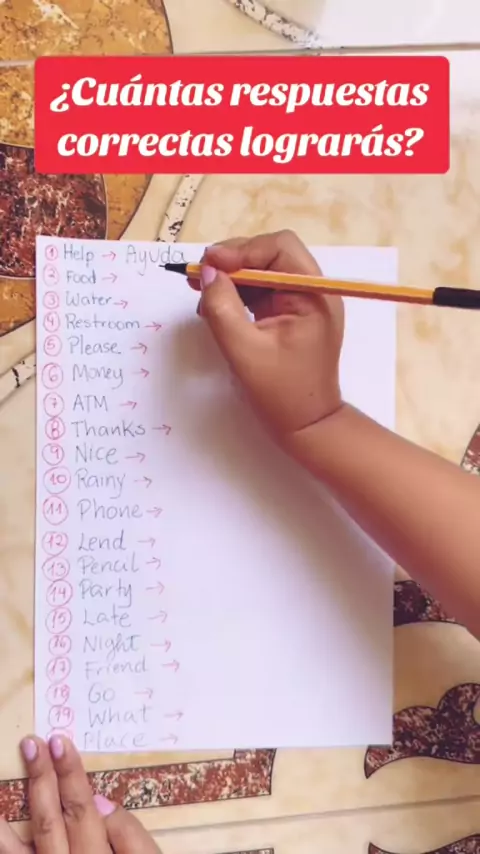 ¿Cuántas respuestas
correctas lograrás?
1 Help → Ayuda
2 Food →
3 Water →
4 Restroom →
5 Please →
6 Money →
7 ATM →
8 Thanks →
9 Nice →
10 Rainy →
11 Phone →
12 Lend →
13 Pencil →
14 Party →
15 Late →
16 Night →
17 Friend →
18 Go →
19 What →
Place →